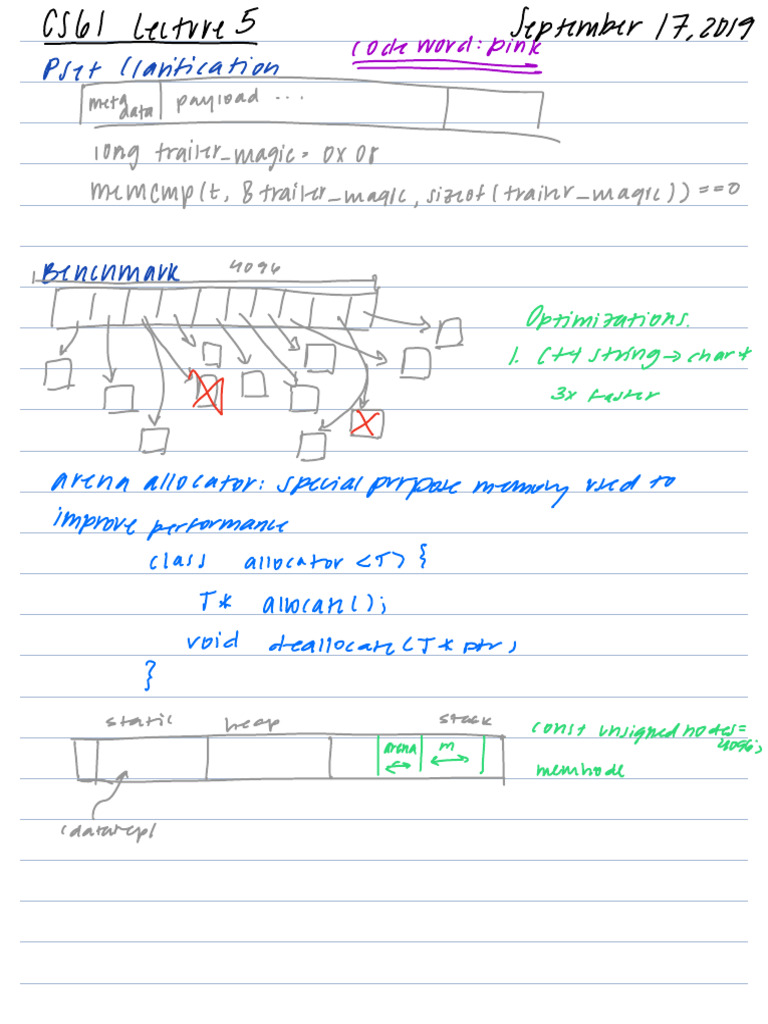 CS61 Lecture 5
September 17, 2019
code word: pink
Pset Clarification
meta data
payload ...
long trailer_magic = 0x
memcmp(t, &trailer_magic, sizeof(trailer_magic)) == 0
Benchmark
4096
Optimizations.
1. C++ string → char *
3x faster
arena allocator: special purpose memory used to
improve performance
class allocator <T> {
T* allocate();
void deallocate(T* ptr;
}
static
heap
stack
arena
m
const unsigned nodes =
4096;
memnode